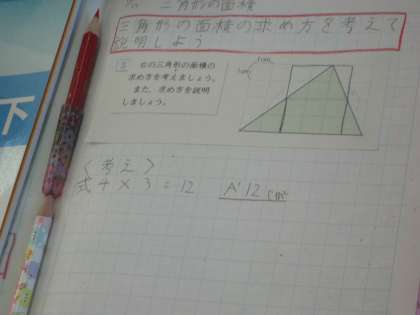 三角形の面積
三角形の面積の求め方を考えて
説明しよう
2 右の三角形の面積の
求め方を考えましょう。
また、求め方を説明
しましょう。
1cm
1cm
〈考え〉
式 4×3=12 A 12cm²
下